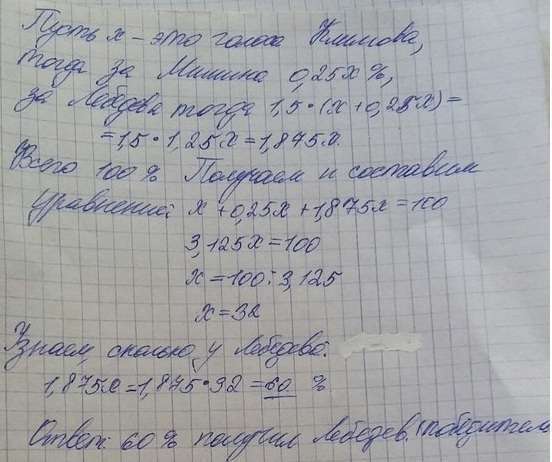 Пусть х – это голоса Климова,
тогда за Мишина 0,25х %,
за Лебедева тогда 1,5·(х+0,25х)=
=1,5·1,25х=1,875х.
Всего 100% Получаем и составим
уравнение: х+0,25х+1,875х=100
3,125х=100
х=100:3,125
х=32
Узнаем, сколько у Лебедева:
1,875х=1,875·32=60 %
Ответ: 60% получил Лебедев. (победитель